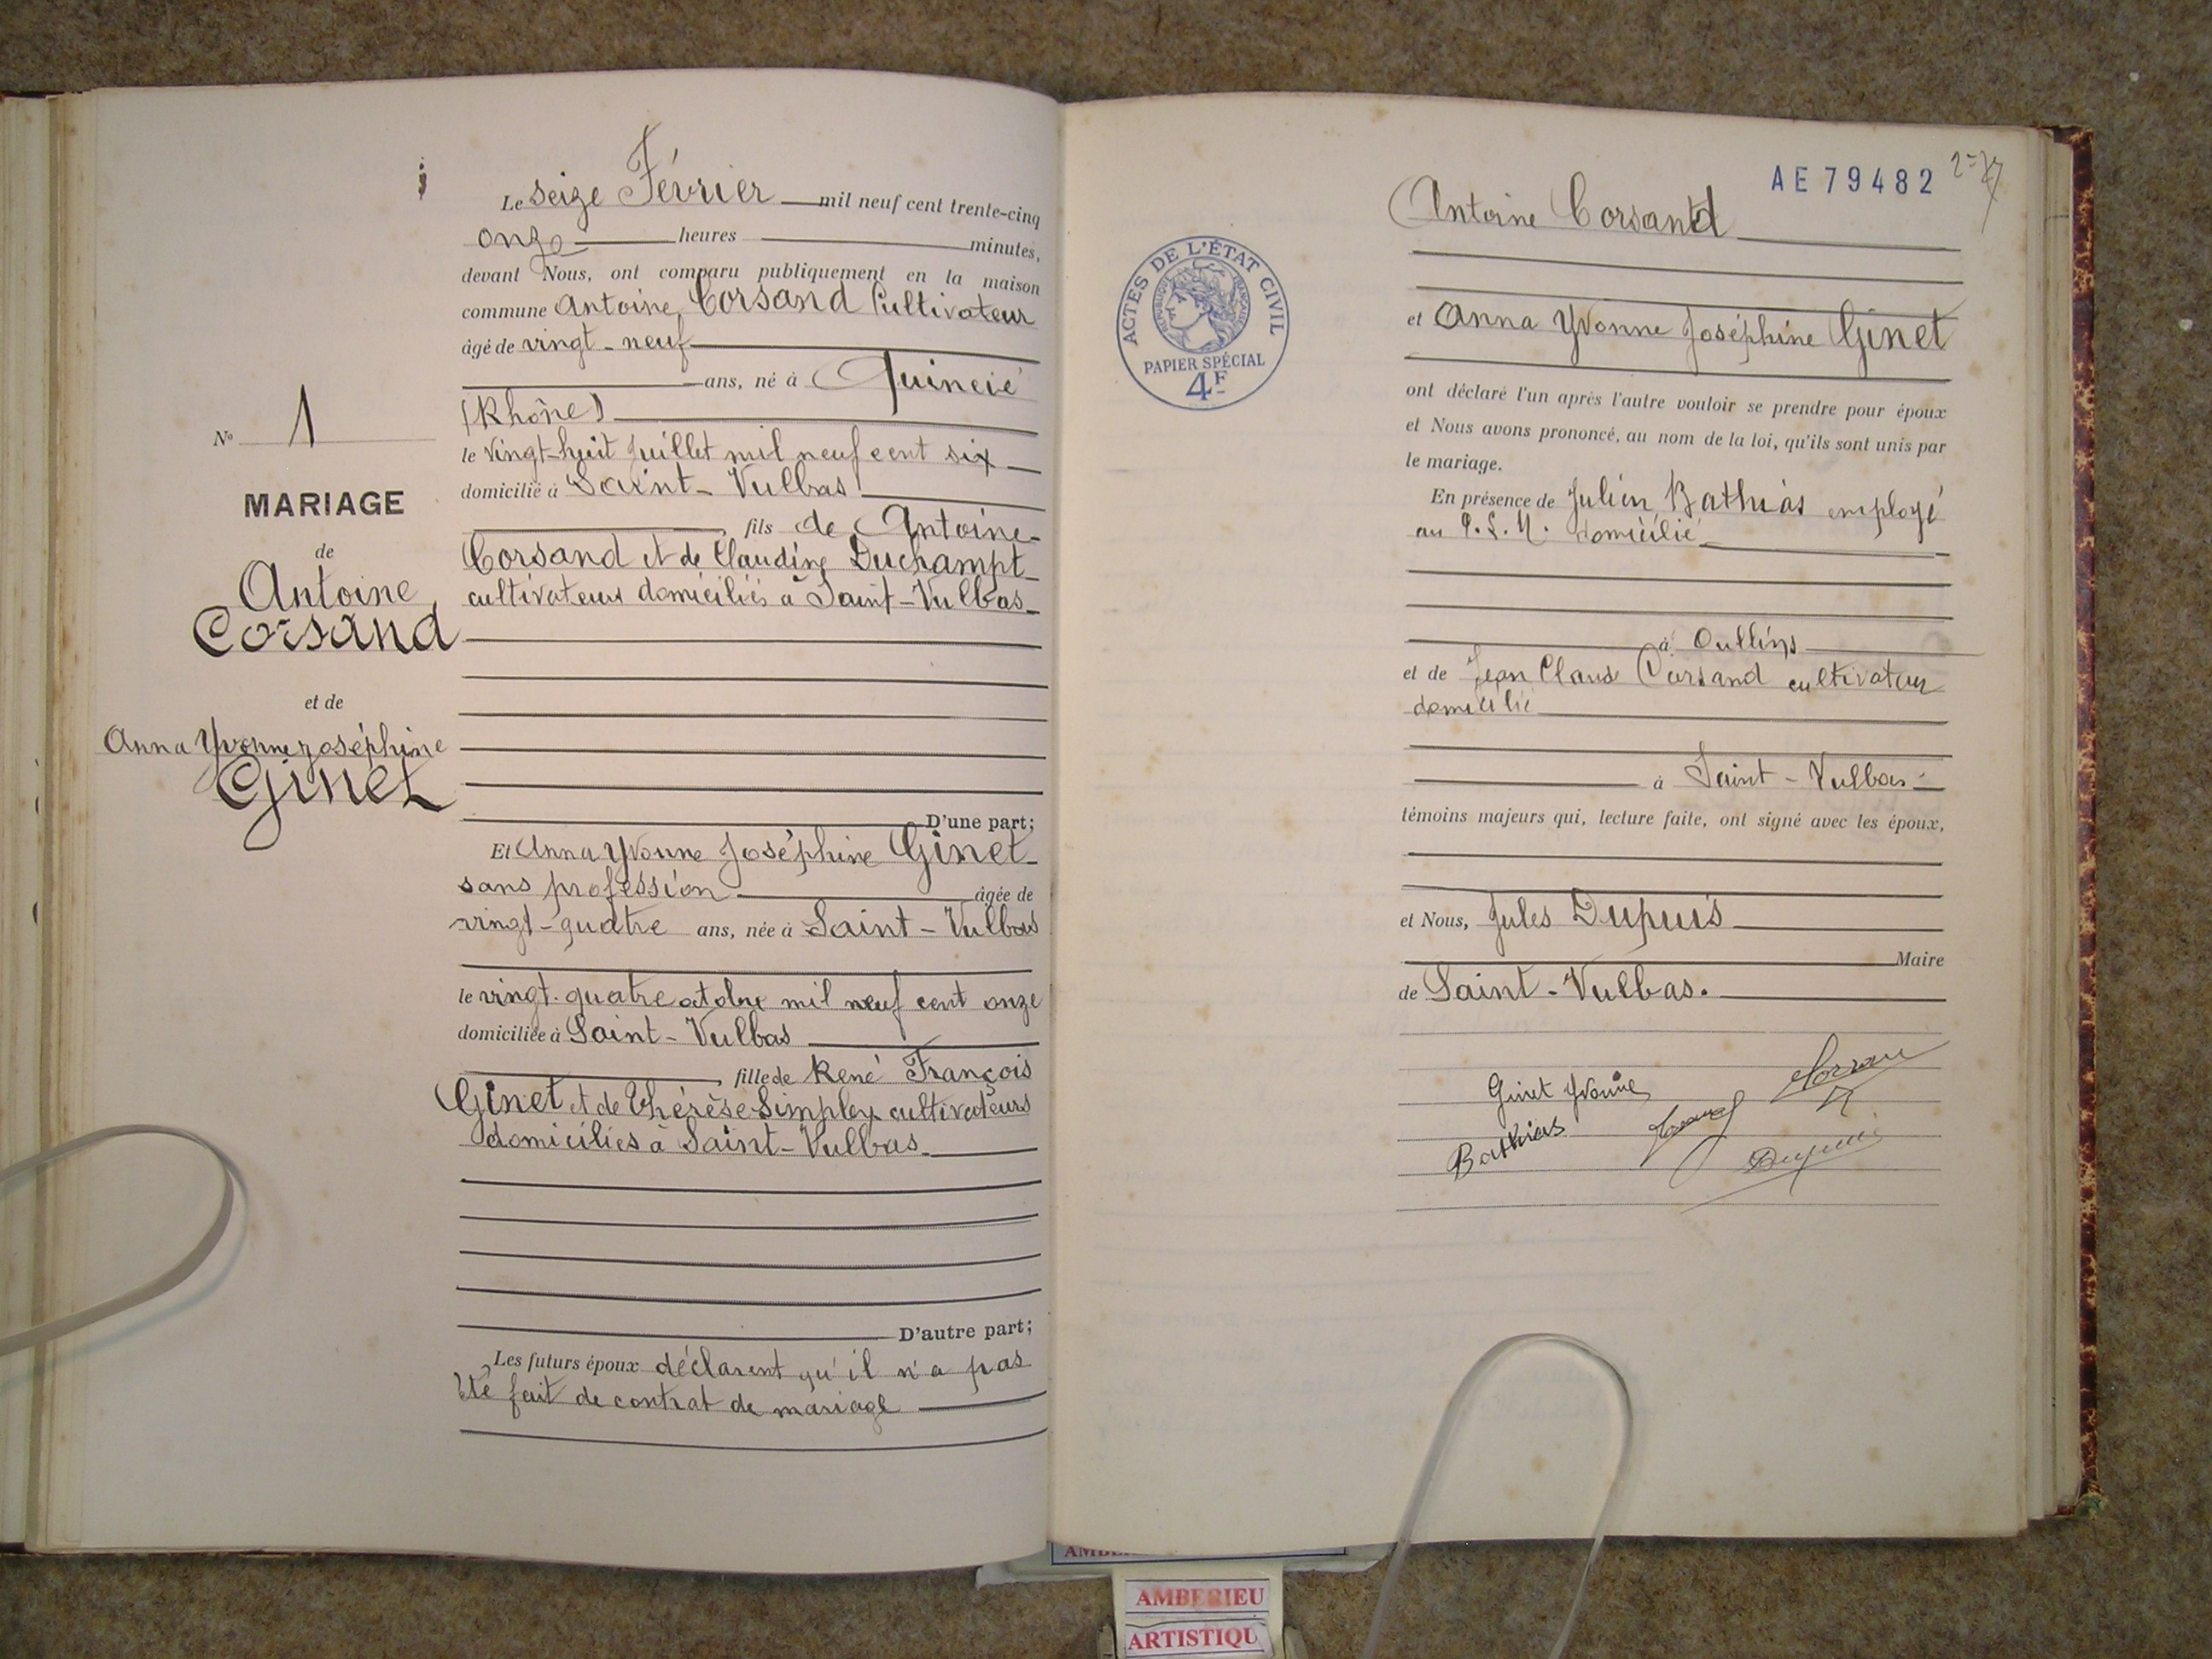 Le seize Février mil neuf cent trente-cinq
onze heures minutes,
devant Nous, ont comparu publiquement en la maison
commune Antoine Corsand Cultivateur
âgé de vingt-neuf
ans, né à Quincié
(Rhône)
le vingt-huit Juillet mil neuf cent six
domicilié à Saint-Vulbas
fils de Antoine
Corsand et de Claudine Duchampt
cultivateurs domiciliés à Saint-Vulbas
N° 1
MARIAGE
de
Antoine
Corsand
et de
Anna Yvonne Joséphine
Ginet
D'une part;
Et Anna Yvonne Joséphine Ginet
sans profession âgée de
vingt-quatre ans, née à Saint-Vulbas
le vingt-quatre octobre mil neuf cent onze
domiciliée à Saint-Vulbas
fille de René François
Ginet et de Thérèse Simplex cultivateurs
domiciliés à Saint-Vulbas
D'autre part;
Les futurs époux déclarent qu'il n'a pas
été fait de contrat de mariage
AE 79482
Antoine Corsand
ACTES DE L'ÉTAT CIVIL
RÉPUBLIQUE FRANÇAISE
PAPIER SPÉCIAL
4F
et Anna Yvonne Joséphine Ginet
ont déclaré l'un après l'autre vouloir se prendre pour époux
et Nous avons prononcé, au nom de la loi, qu'ils sont unis par
le mariage.
En présence de Julien Bathias employé
au P.L.M. domicilié
à Oullins
et de Jean Claude Corsand cultivateur
domicilié
à Saint-Vulbas
témoins majeurs qui, lecture faite, ont signé avec les époux,
et Nous, Jules Dupuis
Maire
de Saint-Vulbas.
Ginet Yvonne
Bathias
Dupuis
AMBERIEU
ARTISTIQU